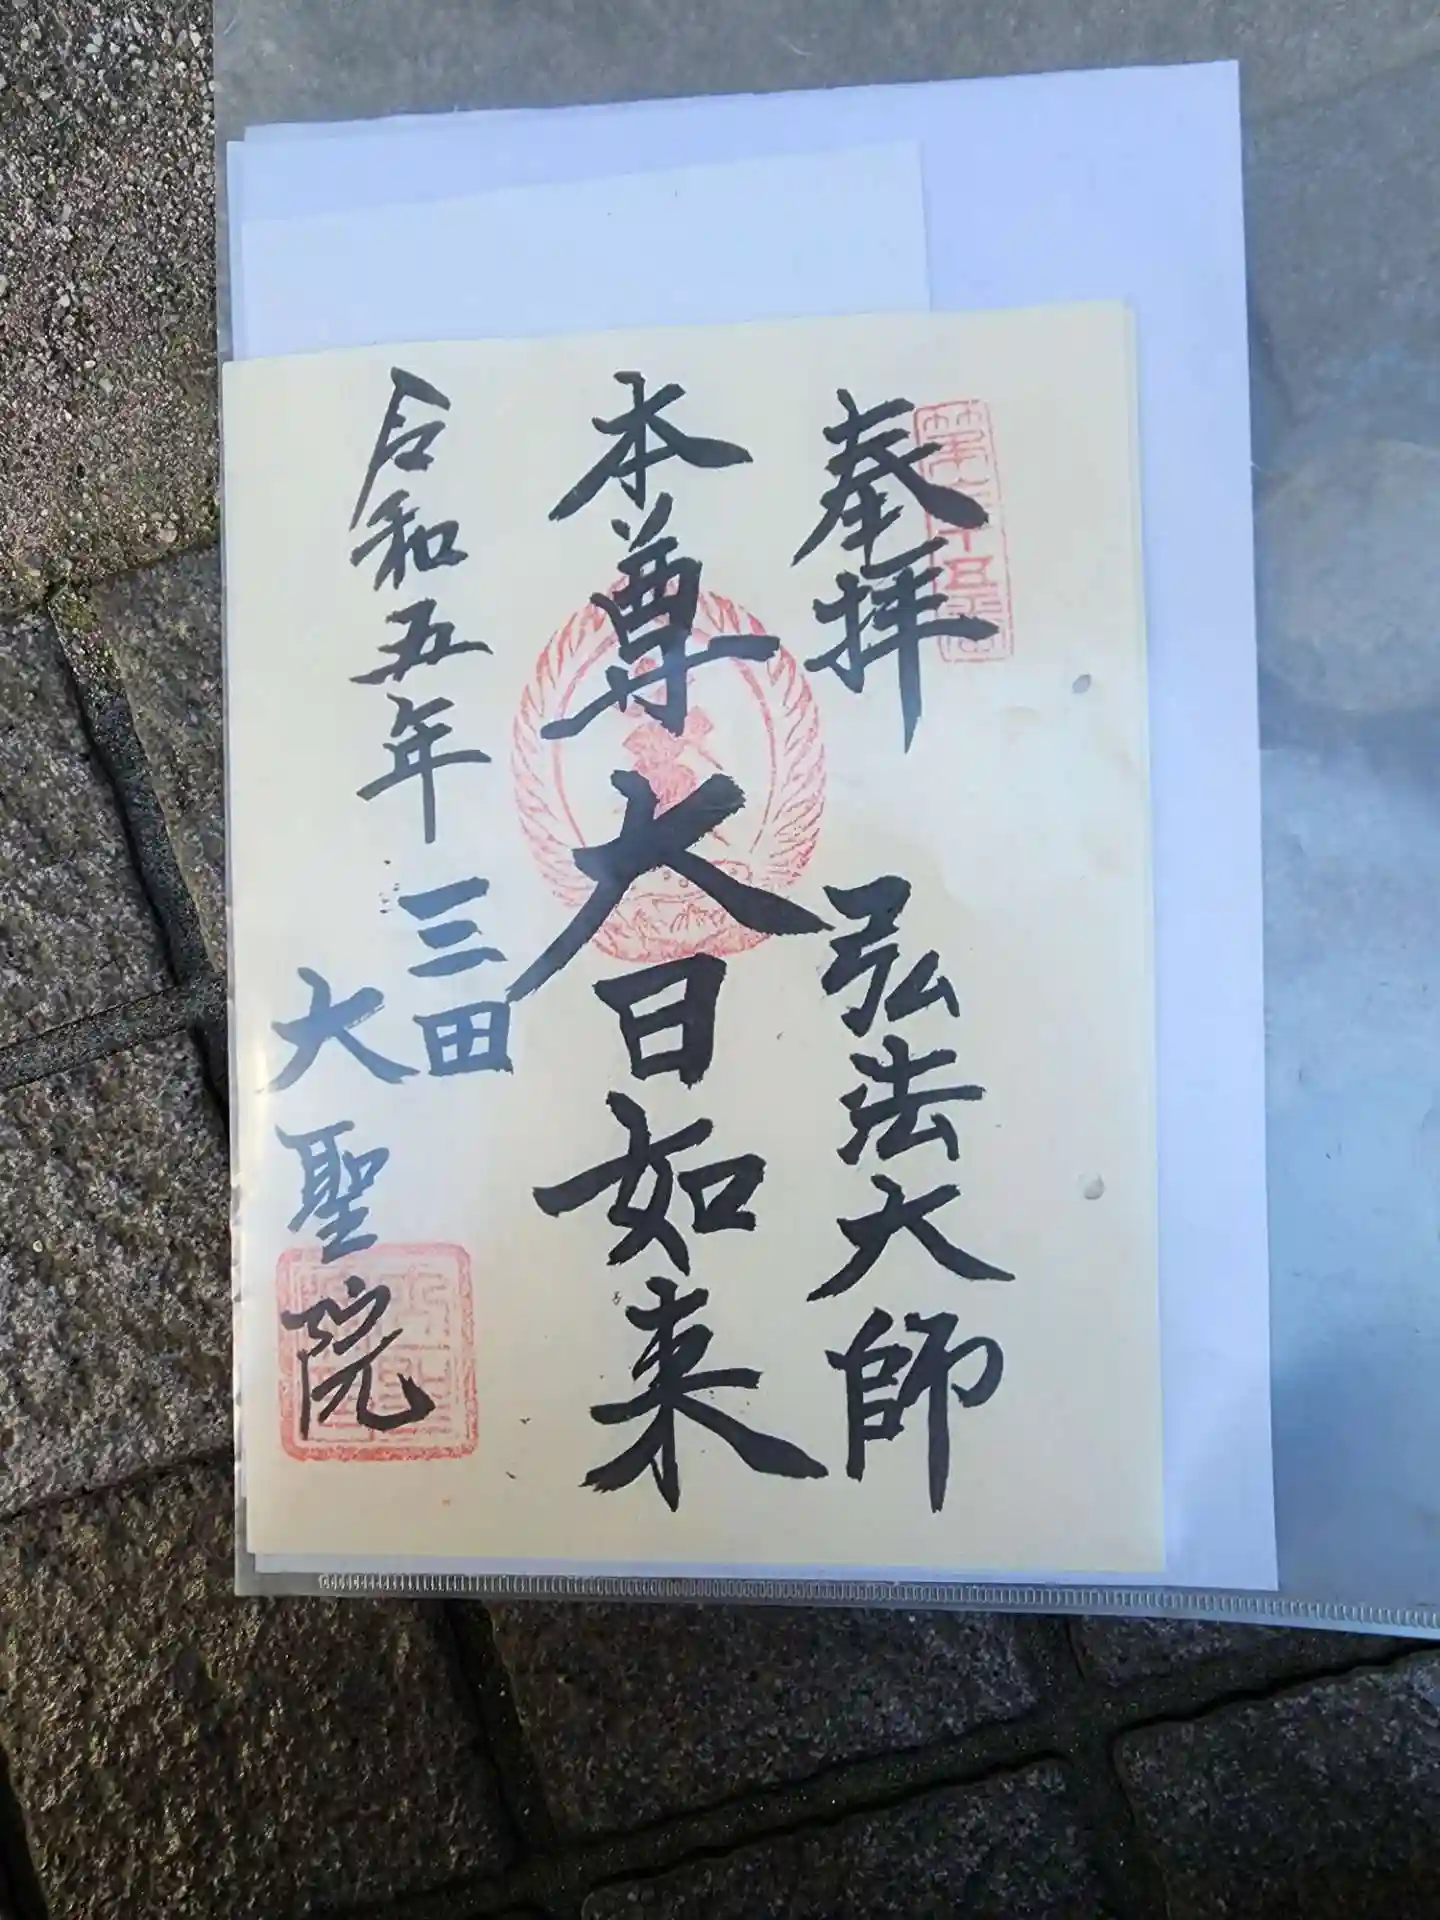 奉拝
弘法大師
本尊
大日如来
令和五年
三田
大聖院